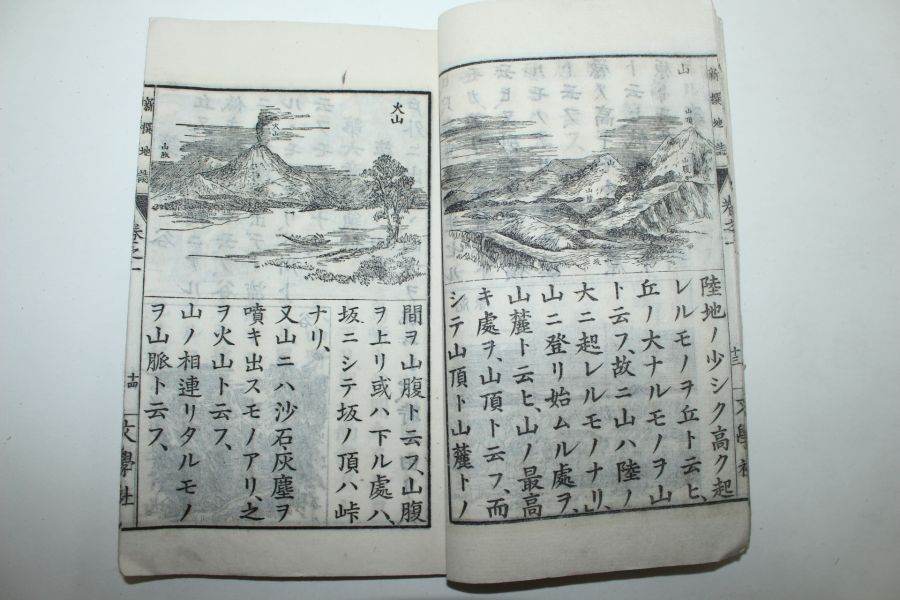 新撰地誌
巻之一
十三
文學社
山
山頂
山腹
山麓
坂
陸地ノ少シク高ク起
レルモノヲ丘ト云ヒ、
丘ノ大ナルモノヲ山
ト云フ、故ニ山ハ陸ノ
大ニ起レルモノナリ、
山ニ登リ始ムル處ヲ、
山麓ト云ヒ、山ノ最高
キ處ヲ、山頂ト云フ、而
シテ山頂ト山麓トノ
火山
火山
山脈
間ヲ山腹ト云フ、山腹
ヲ上リ或ハ下ル處ハ、
坂ニシテ坂ノ頂ハ峠
ナリ、
又山ニハ沙石、灰塵ヲ
噴キ出スモノアリ、之
ヲ火山ト云フ、
山ノ相連リタルモノ
ヲ山脈ト云フ、
新撰地誌
巻之一
十四
文學社